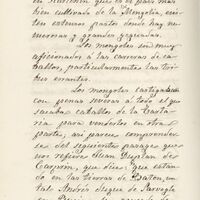 en occidente que es el país mas
bien cultivado de la Mongolia, exis-
ten extensos pastos donde hay nu-
merosas y grandes yeguadas.
Los mongoles son muy
aficionados á las carreras de ca-
ballos, particularmente las tri-
bus errantes.
Los mongoles castigaban
con penas severas á todo el que
sacaba caballos de la Tarta-
ria para venderlos en otra
parte, asi parece comprender-
se del siguiente parage que
nos refiere Juan Duplan de
Carpin, que dice, que estan-
do en las tierras de Baton, un
tal Andrés duque de